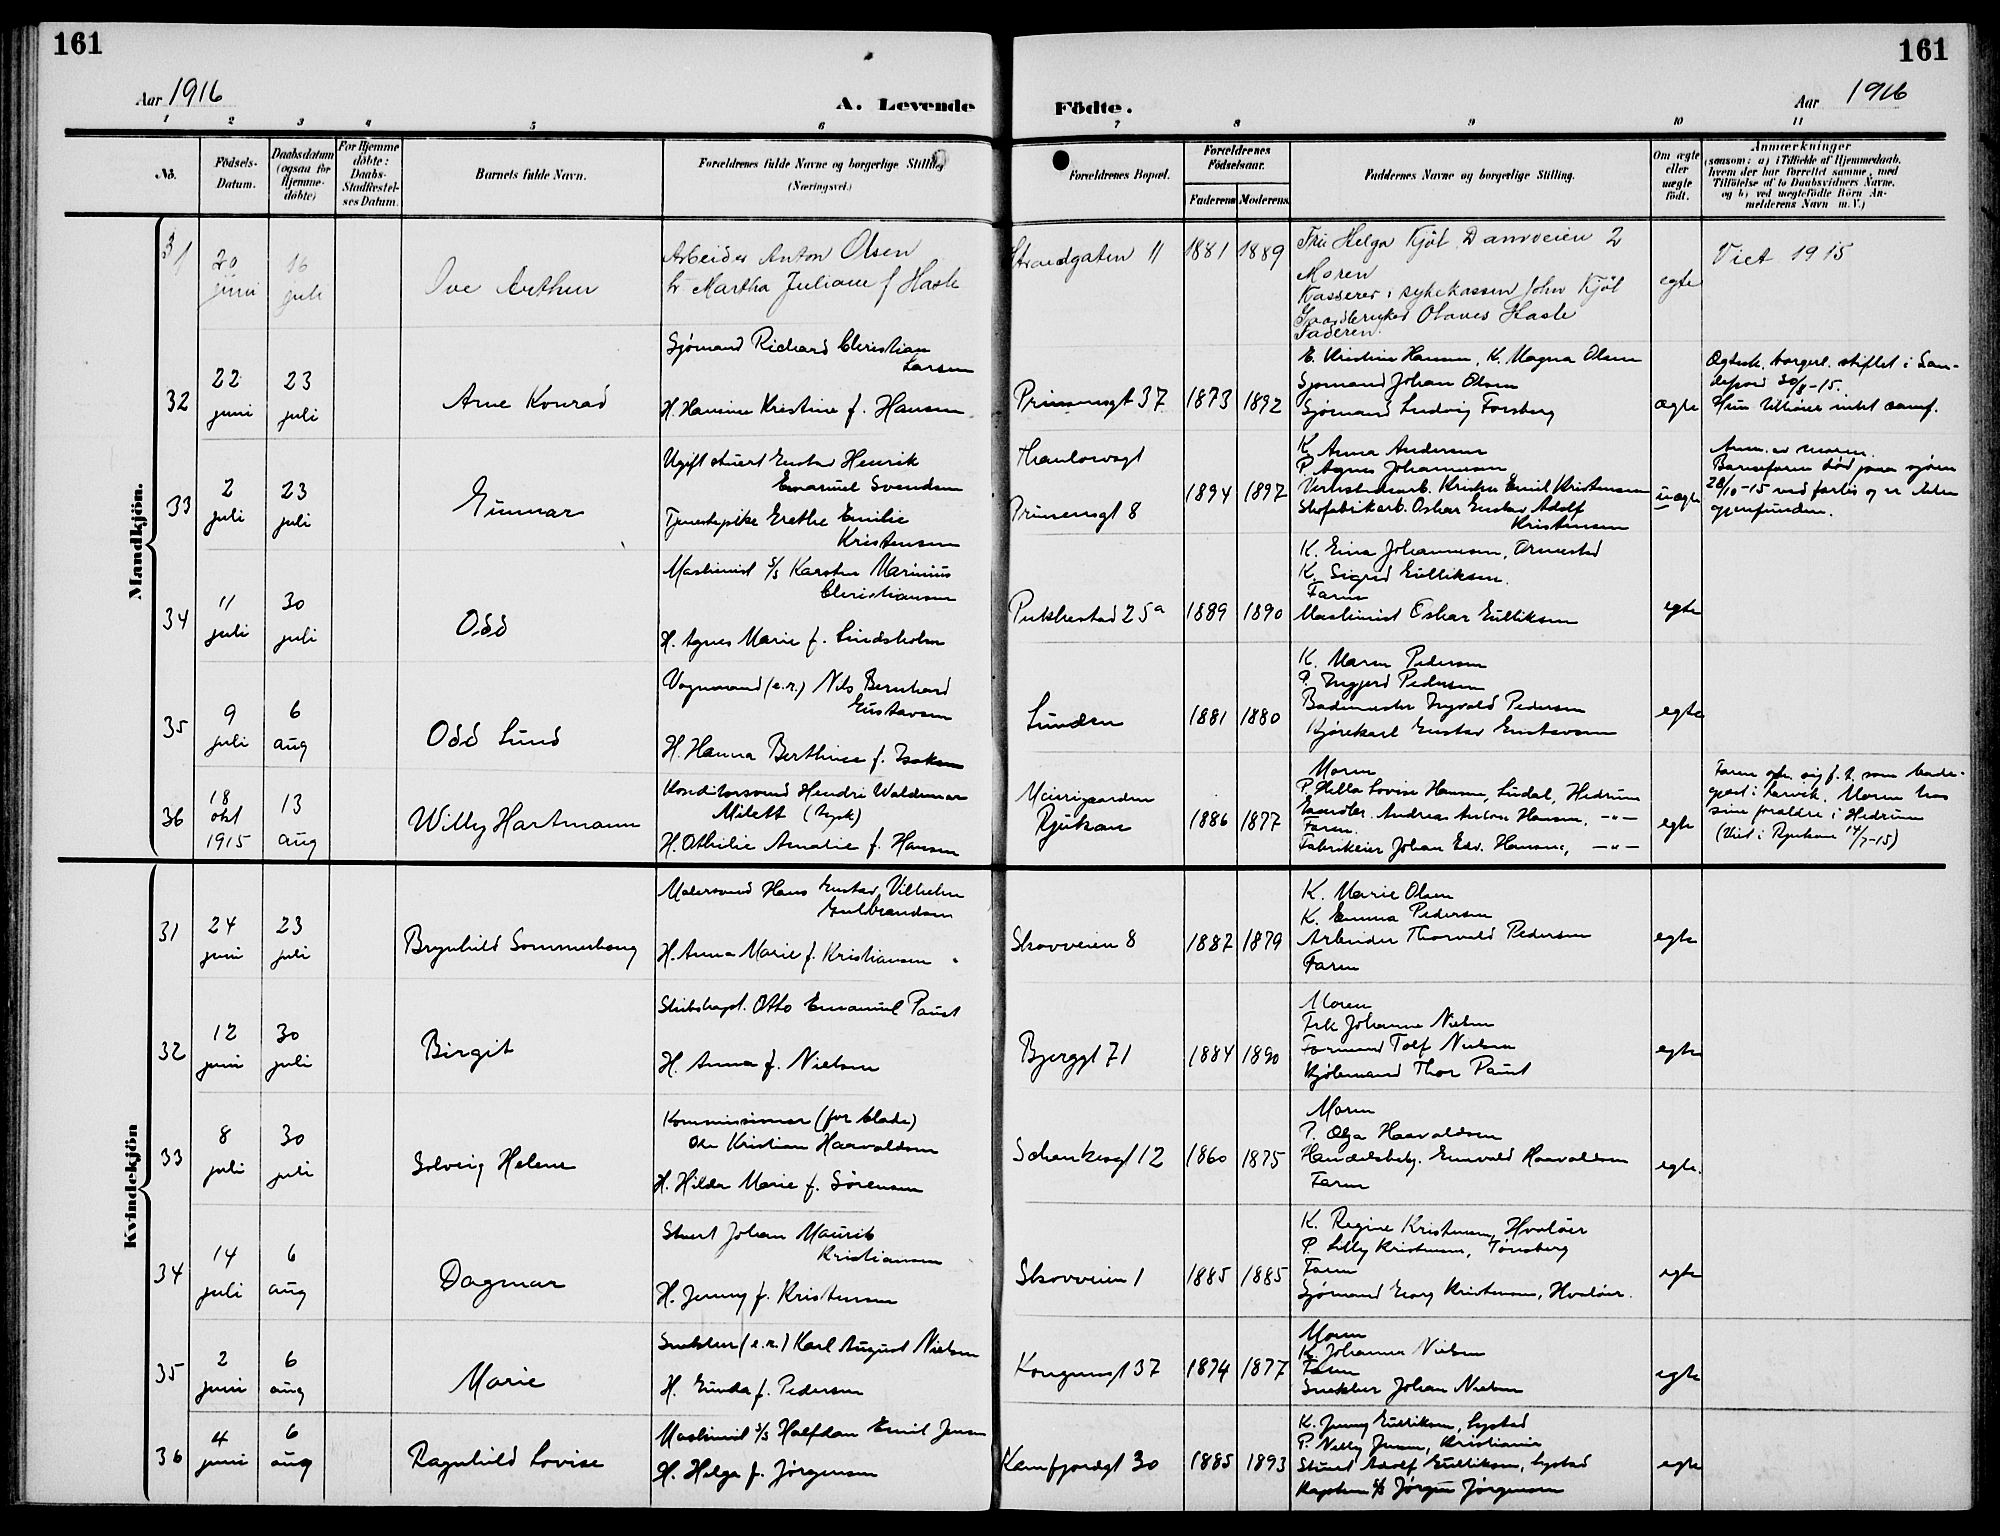 161
161
Aar 1916
A. Levende
Födte.
Aar 1916
1 2 3 4 5 6 7 8 9 10 11
No.
Födsels-Datum.
Daabsdatum (ogsaa for Hjemme-döbte)
For Hjemme döbte: Daabs-Stadfæstelses Datum.
Barnets fulde Navn.
Forældrenes fulde Navne og borgerlige Stilling
(Næringsvei.)
Forældrenes Bopæl.
Forældrenes Fødselsaar.
Faderens Moderens
Faddernes Navne og borgerlige Stilling.
Om ægte eller uægte født.
Anmærkninger
(saasom: a) i Tilfælde af Hjemmedaab, hvem der har forrettet samme, med Tilföielse af to Daabsvidners Navne, og b) ved uegtefödte Börn Anmelderens Navn m. V.)
Mandkjön.
31
20 juni
16 juli
Ove Arthur
Arbeider Anton Olsen
h. Martha Juliane f Hasle
Strandgaten 11
1881 1889
Fru Helga Kjøl Damveien 2
Moren
Kasserer i sykekassen John Kjøl
Olaves Hasle
Faderen.
egte
Viet 1915
32
22 juni
23 juli
Arne Konrad
Sjømand Richard Christian
Larsen
H. Hanine Kristine f. Hansen
Prinsensgt 37
1873 1892
E. Kristine Hansen, K. Magna Olsen
Sjømand Johan Olsen
Sjømand Ludvig Forsberg
ægte
Ægtesk. borgerl. stiftet i San-
defjord 30/8-15.
Hun tilhører intet samf.
33
2 juli
23 juli
Gunnar
Ugift stuert Gustav Henrik
Emanuel Svendsen
Tjenestepike Grethe Emilie
Kristensen
Thaulowsgt
Prinsensgt 8
1894 1897
K. Anna Andersen
P. Agnes Johannessen
Verkstedsarb. Krister Emil Kristensen
Skofabrikarb. Oskar Gustav Adolf
Kristensen
uægte
Anm. av moren.
Barnefaren død paa sjøen
28/10-15 ved forlis og er ikke
gjenfunden.
34
11 juli
30 juli
Odd
Maskinist s/s Karsten Marinius
Christiansen
H. Agnes Marie f. Lindsholm
Pukkestad 25a
1889 1890
K. Eina Johannesen, Ormestad
K. Sigrid Gulliksen.
Faren
Maskinist Oskar Gulliksen
egte
35
9 juli
6 aug
Odd Lund
Vognmand (e.r.) Nils Bernhard
Gustavsen
H. Hanna Berthine f. Isaksen
Lunden
1881 1880
K. Maren Pedersen
P. Ingjerd Pedersen
Bademester Ingvald Pedersen
Kjørekarl Gustav Gustavsen
egte
36
18 okt 1915
13 aug
Willy Hartmann
Konditorsvend Hendri Waldemar
Milett (tysk)
H. Othilie Amalie f. Hansen
Meierigaarden
Rjukan
1886 1877
Moren
P. Helle Lovise Hansen, Lidal, Hedrum
Gaardbr. Andreas Anton Hansen, -"-
Faren.
Fabrikeier Johan Edv. Hansen, -"-
egte
Faren oph. sig f. t. som bade-
gjest i Larvik. Moren hos
sine foraldre i Hedrum
(Viet i Rjukan 14/7-15)
Kvindekjön
31
24 juni
23 juli
Brynhild Sommerhaug
Malersvend Hans Gustav Vilhelm
Gulbrandsen
H. Anna Marie f. Kristiansen
Skovveien 8
1887 1879
K. Marie Olsen
K. Emma Pedersen
Arbeider Thorvald Pedersen
Faren
egte
32
12 juni
30 juli
Birgit
Skibskapt. Otto Emanuel Paust
H. Anna f. Nielsen
Bjerggt 71
1884 1890
Moren
Frk Johanne Nielsen
Formand Tolf Nielsen
Kjølemand Thor Paust
egte
33
8 juli
30 juli
Solveig Helene
Kommissionær (for blade)
Ole Kristian Haavaldsen
H. Hilda Marie f. Sörensen
Schenkesgt 12
1860 1875
Moren
P. Olga Haavaldsen
Handelsbetj. Enevald Haavaldsen
Faren
egte.
34
14 juli
6 aug
Dagmar
Stuert Johan Maurits
Kristiansen
H. Jenny f. Kristensen
Skovveien 1
1885 1885
K. Regine Kristensen, Hvaløer
P. Lilly Kristensen, Tønsberg
Faren
Sjømand Georg Kristensen, Hvaløer.
egte
35
2 juni
6 aug
Marie
Snekker (e.r.) Karl August Nielsen
H. Gunda f. Pedersen
Kongensgt 37
1874 1877
Moren
K. Johanna Nielsen
Faren
Snekker Johan Nielsen
egte
36
4 juni
6 aug
Ragnhild Lovise
Maskinist s/s Halfdan Emil Jensen
H. Helga f. Jørgensen
Kamfjordgt 30
1885 1893
K. Jenny Gulliksen, Lystad
P. Nelly Jensen, Kristiania
Stuert Adolf Gulliksen, Lystad
Kaptein s/s Jørgen Jørgensen
egte